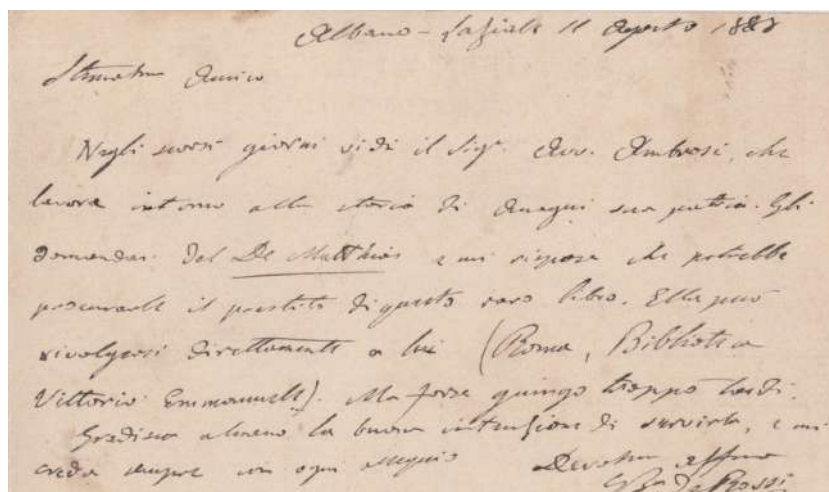 Albano-Laziale 11 Agosto 1887
Stimatmo Amico
Negli scorsi giorni vidi il Sigr. Avv. Ambrosi, che
lavora intorno alla storia di Anagni sua patria. Gli
domandai del De Matthias e mi rispose che potrebbe
procurarle il prestito di questo raro libro. Ella può
rivolgersi direttamente a lui (Roma, Biblioteca
Vittorio Emmanuele). Ma forse giungo troppo tardi.
Gradisca almeno la buona intenzione di servirla, e mi
creda sempre con ogni ossequio Devotmo affmo
de Rossi